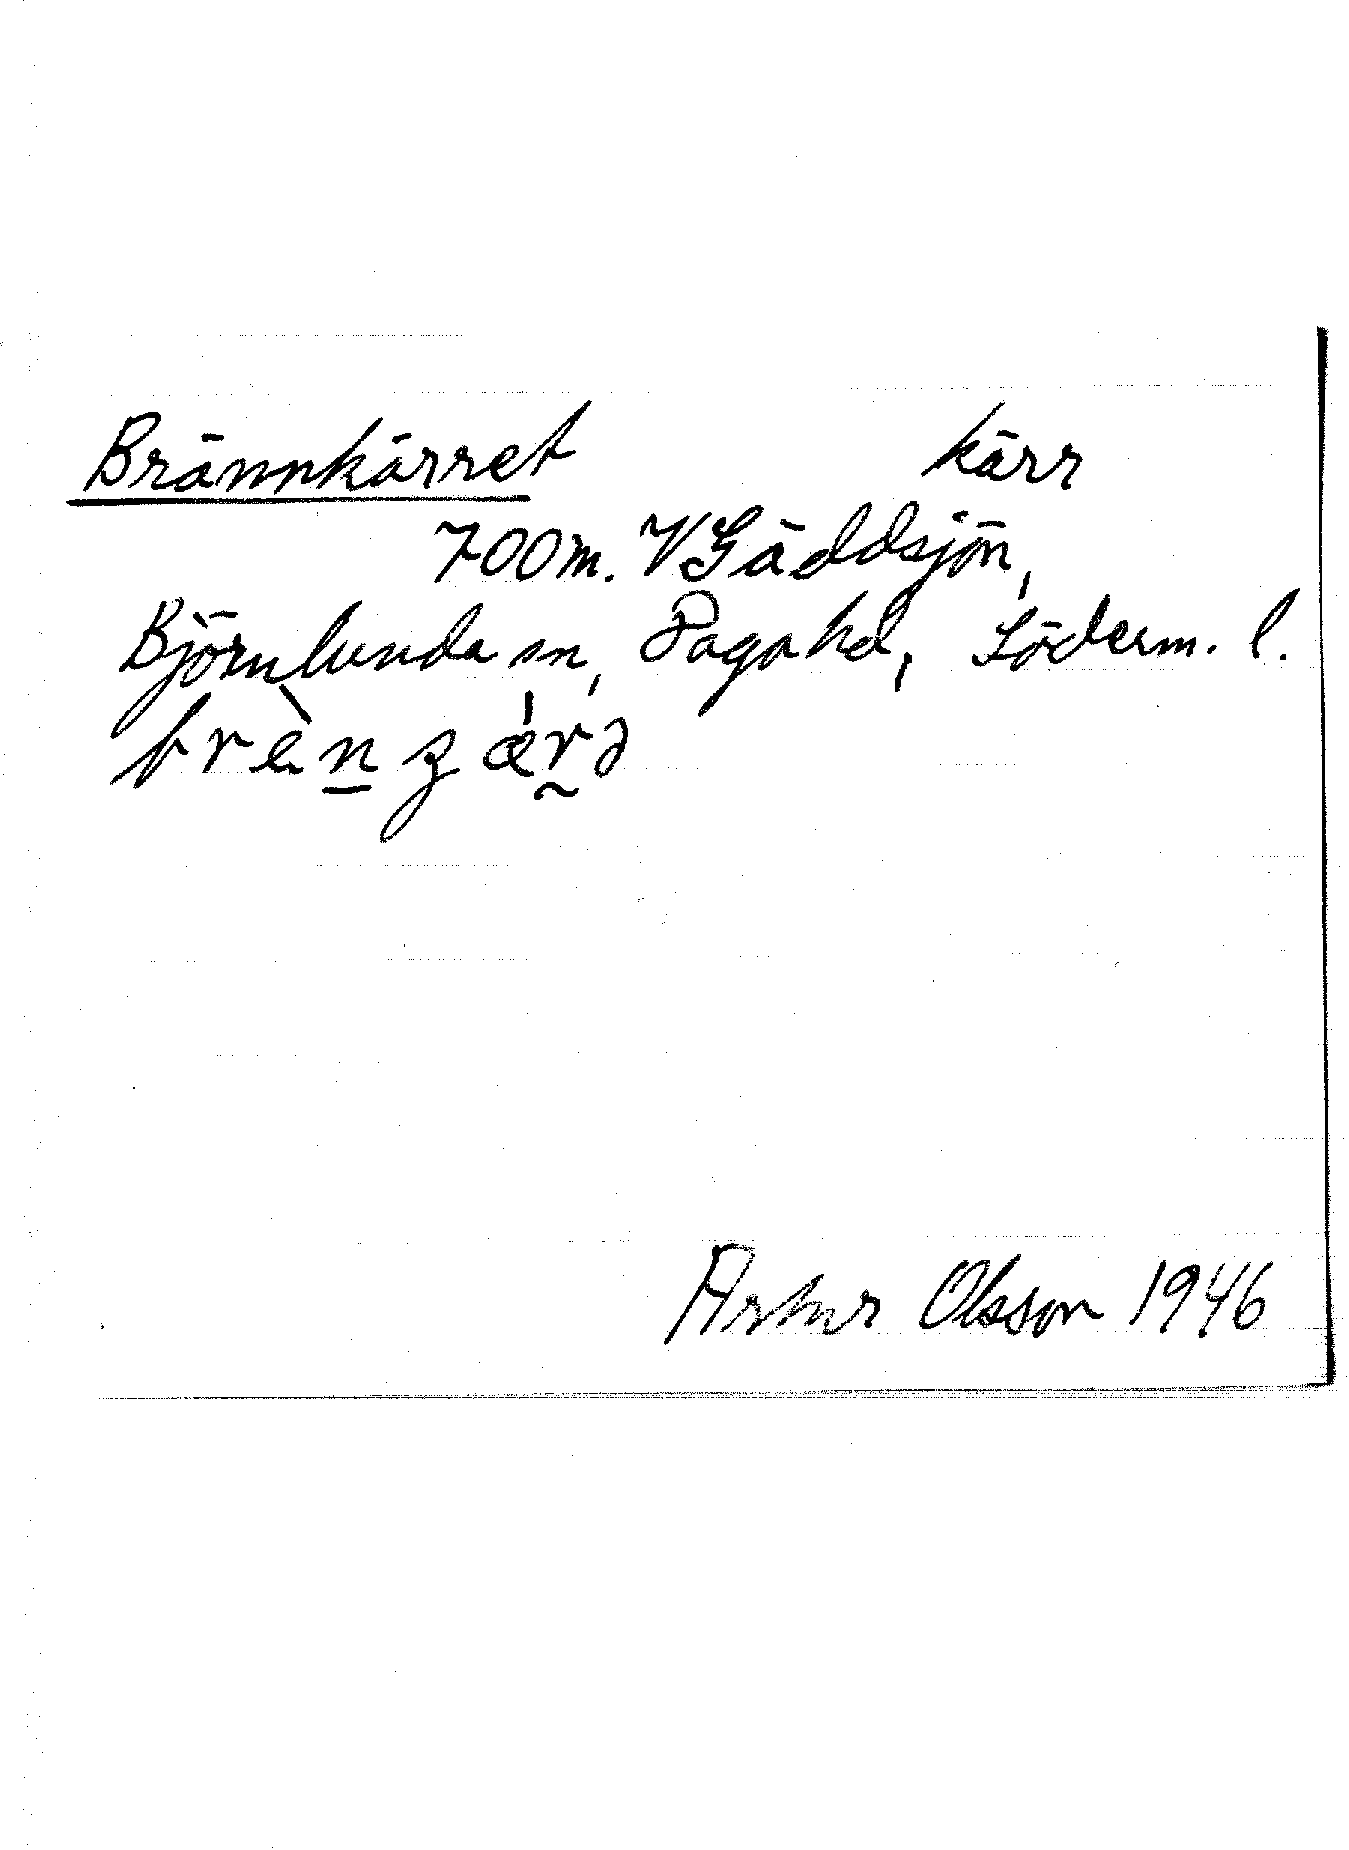 Brännkärret kärr
700 m. V Gäddsjön,
Björnlunda sn, Daga hd, Söderm. l.
Artur Olsson 1946